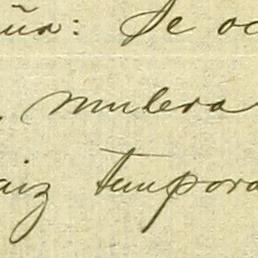 ña: Se oc
mulera
aiz tempora